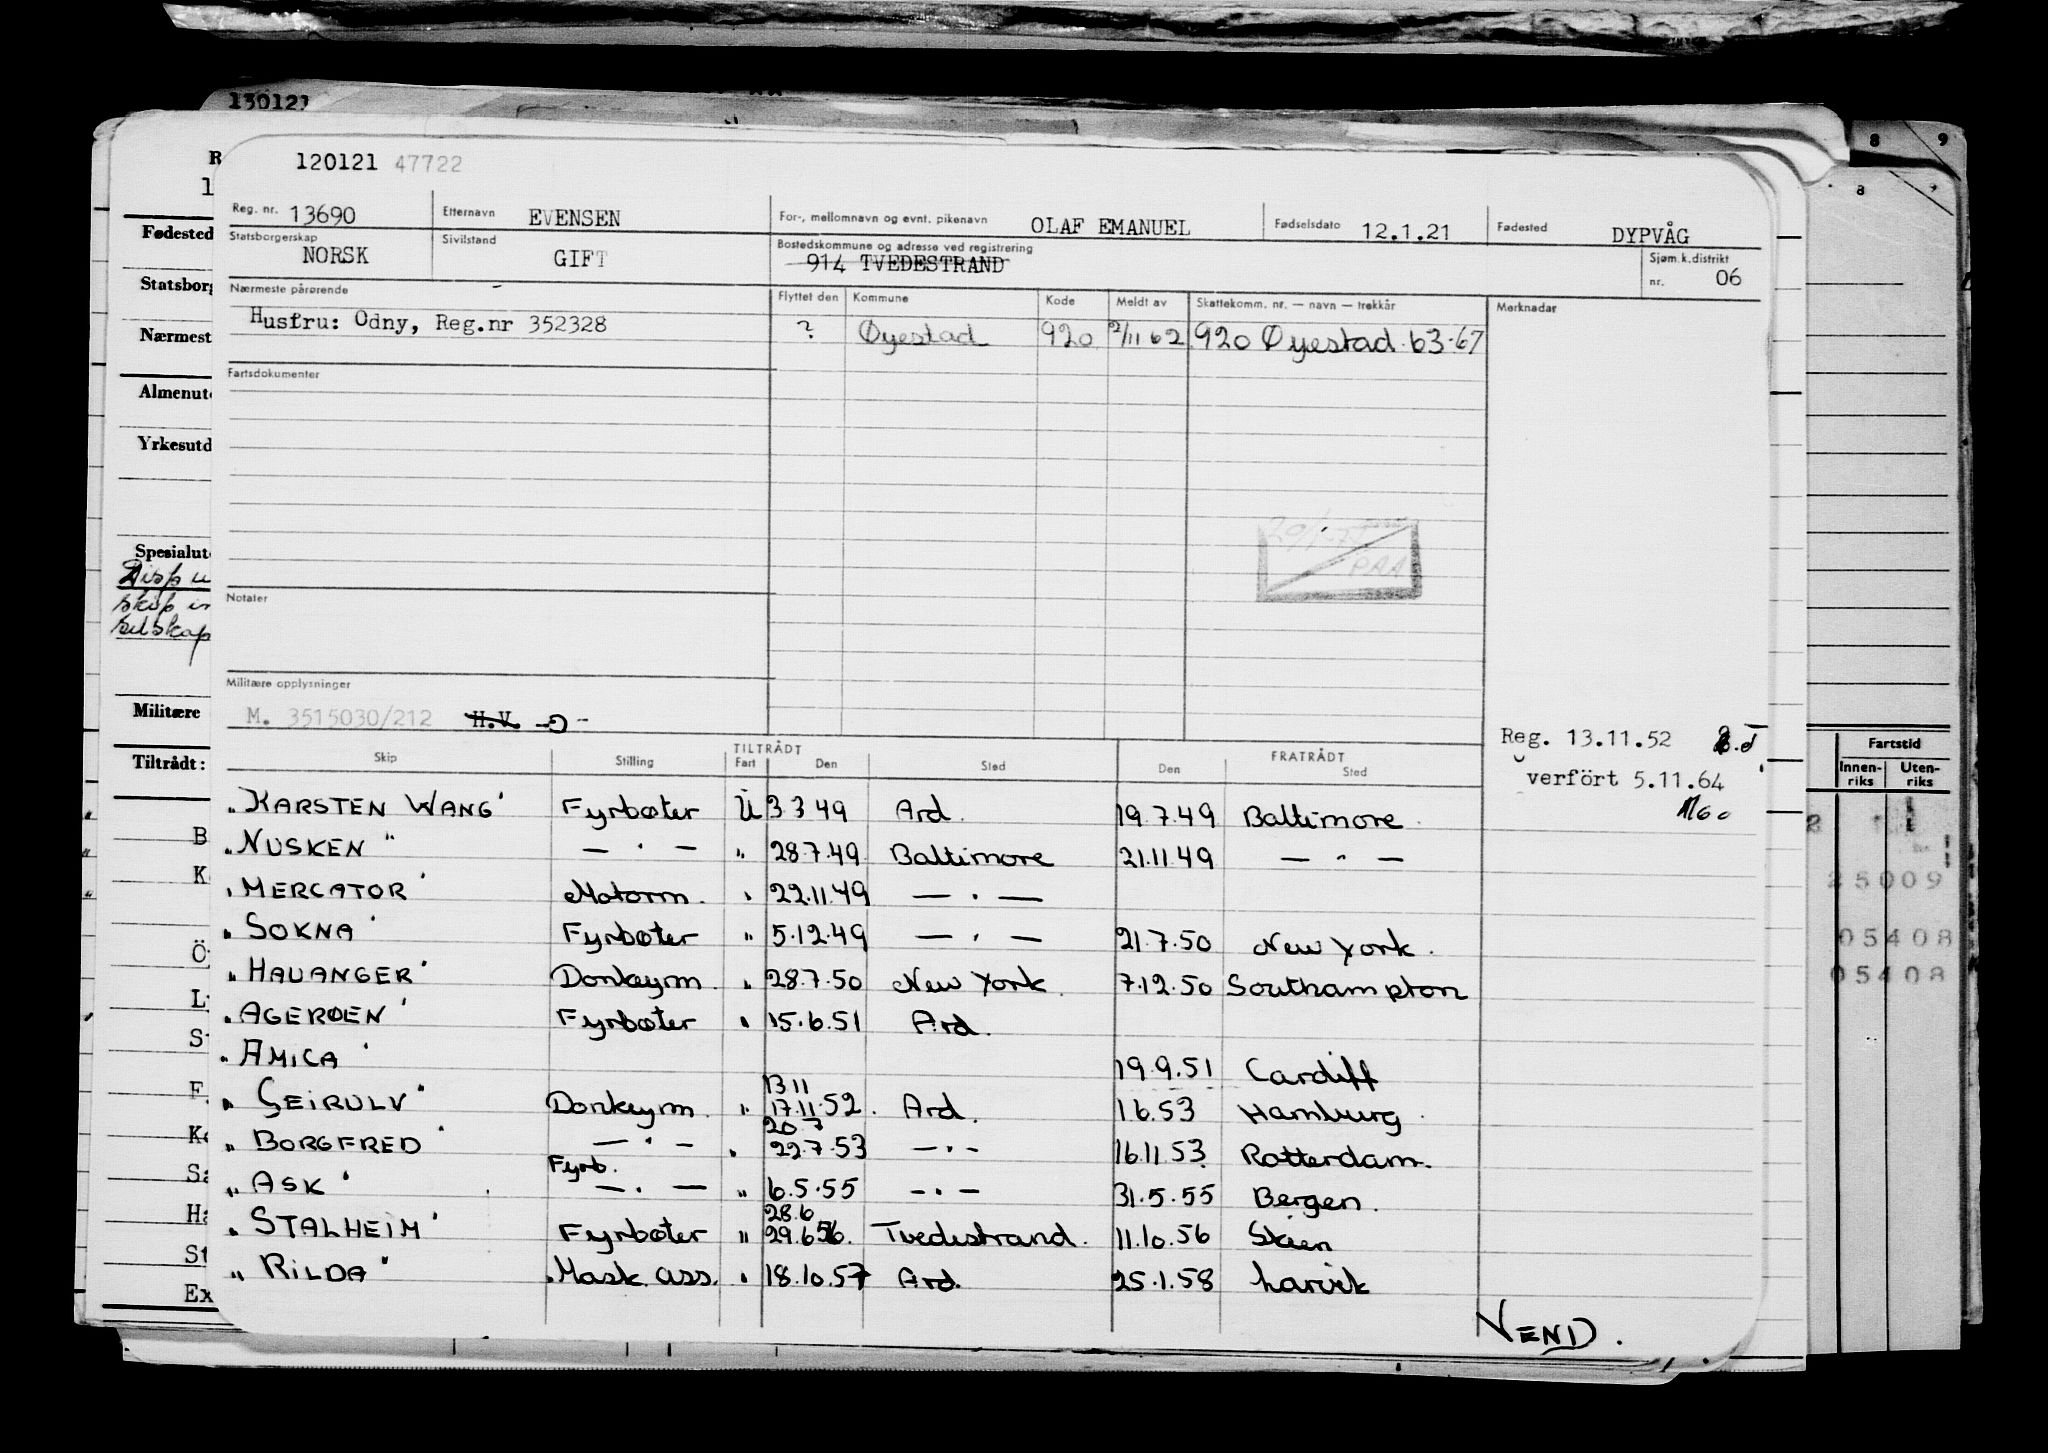 130121
8 9
8
120121 47722
Reg. nr. 13690 Etternavn EVENSEN For-, mellomnavn og evnt. pikenavn OLAF EMANUEL Fødselsdato 12.1.21 Fødested DYPVÅG
Statsborgerskap NORSK Sivilstand GIFT Bostedskommune og adresse ved registrering 914 TVEDESTRAND Sjøm.k.distrikt nr. 06
Nærmeste pårørende Flyttet den Kommune Kode Meldt av Skattekomm. nr. — navn — trekkår Merknadar
Husfru: Odny, Reg.nr 352328 ? Øyestad 920 2/11 62 920 Øyestad 63-67
Fartsdokumenter
PAA
Notater
Militære opplysninger
M. 3515030/212 H.V.
Reg. 13.11.52
verfört 5.11.64
TILTRÅDT FRATRÅDT
Skip Stilling Fart Den Sted Den Sted
"KARSTEN WANG" Fyrbøter U 3 3 49 Ard. 19.7.49 Baltimore
"NUSKEN" — " — " 28.7.49 Baltimore 21.11.49 — " —
"MERCATOR" Motorm. " 22.11.49 — " —
"SOKNA" Fyrbøter " 5.12.49 — " — 21.7.50 New York.
"HAVANGER" Donkeym. " 28.7.50 New York. 7.12.50 Southampton
"AGERØEN" Fyrbøter " 15.6.51 Ard.
"AMICA" 19.9.51 Cardiff
13 11
"GEIRULV" Donkeym. " 17.11.52. Ard. 1.6.53 Hamburg
20 7
"BORGFRED" — " — " 22.7.53 — " — 16.11.53 Rotterdam.
Fyrb.
"ASK" — " — " 6.5.55 — " — 31.5.55 Bergen.
28.6
"STALHEIM" Fyrbøter " 29.6.56. Tvedestrand. 11.10.56 Skien
"RILDA" Mask. ass. " 18.10.57 Ard. 25.1.58 Larvik
VEND.
Fødested
Statsborg
Nærmest
Almenut
Yrkesutd
Spesialut
skip
selskap
Militære
Tiltrådt:
B
K
Ö
L
S
F
K
Sa
Ha
St
Ex
Fartstid
Innen-riks Uten-riks
25009
05408
05408